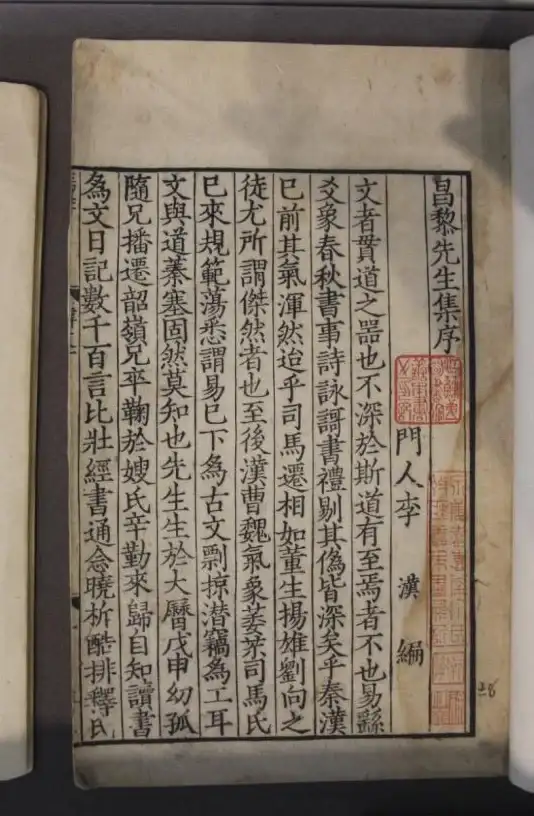 昌黎先生集序
門人李漢編
文者貫道之器也不深於斯道有至焉者不也易繇
爻象春秋書事詩詠謌書禮剔其偽皆深矣乎秦漢
已前其氣渾然迨乎司馬遷相如董生揚雄劉向之
徒尤所謂傑然者也至後漢曹魏氣象萎苶司馬氏
已來規範蕩悉謂易已下為古文剽掠潜竊為工耳
文與道蓁塞固然莫知也先生生於大曆戊申幼孤
隨兄播遷韶嶺兄卒鞠於嫂氏辛勤來歸自知讀書
為文日記數千百言比壯經書通念曉析酷排釋氏